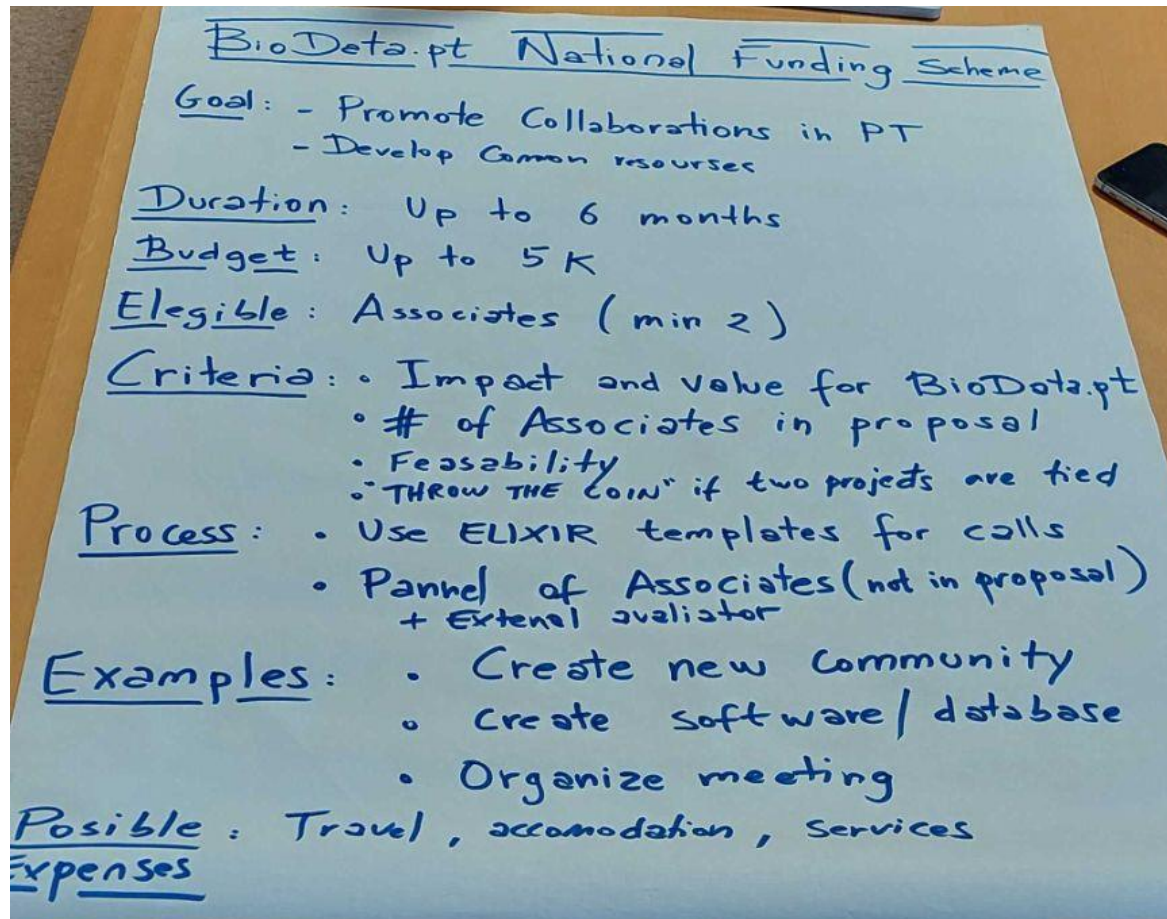 BioData.pt National Funding Scheme
Goal: - Promote Collaborations in PT
- Develop Common resourses
Duration: Up to 6 months
Budget: Up to 5K
Elegible: Associates (min 2)
Criteria: • Impact and value for BioData.pt
• # of Associates in proposal
• Feasability
• "THROW THE COIN" if two projects are tied
Process: • Use ELIXIR templates for calls
• Pannel of Associates (not in proposal)
+ Extenal avaliator
Examples: • Create new Community
• Create software/database
• Organize meeting
Posible : Travel, accomodation, services
Expenses